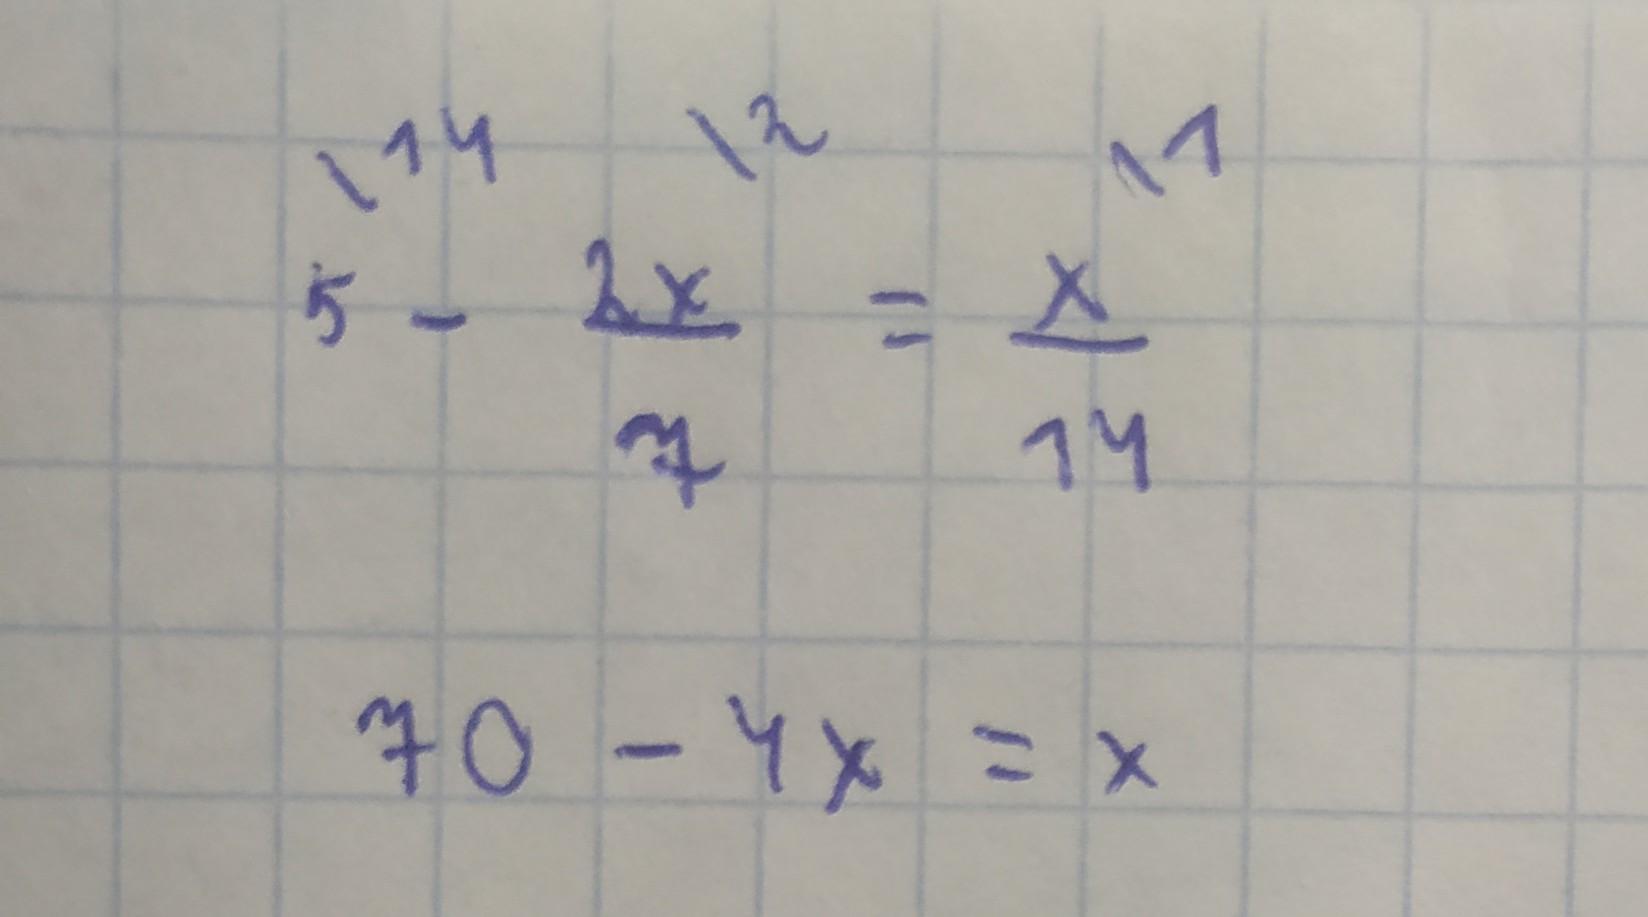 \14 \2 \1
5 - 2x/7 = x/14
70 - 4x = x